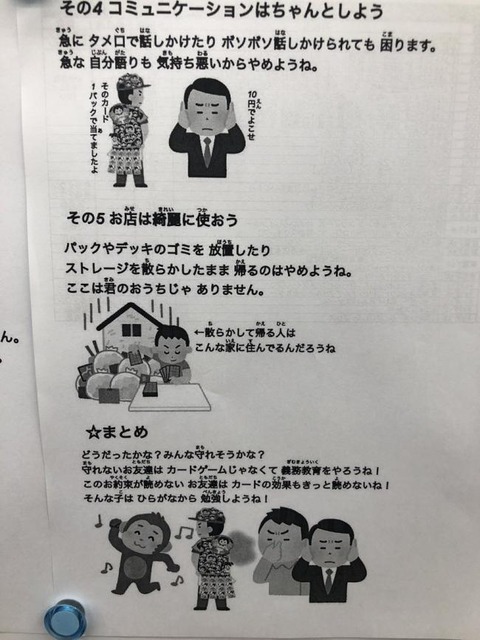 その4 コミュニケーションはちゃんとしよう
急に タメ口で話しかけたり ボソボソ話しかけられても 困ります。
急な 自分語りも 気持ち悪いからやめようね。
そのカード
1パックで当てましたよ
10円でよこせ
その5 お店は綺麗に使おう
パックやデッキのゴミを 放置したり
ストレージを散らかしたまま 帰るのはやめようね。
ここは君のおうちじゃ ありません。
←散らかして帰る人は
こんな家に住んでるんだろうね
☆まとめ
どうだったかな？みんな守れそうかな？
守れないお友達は カードゲームじゃなくて 義務教育をやろうね！
このお約束が読めない お友達は カードの効果もきっと読めないね！
そんな子は ひらがなから 勉強しようね！
ん。